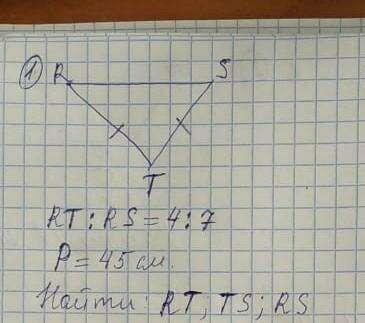 ① R S
T
RT : RS = 4 : 7
P = 45 см.
Найти: RT; TS; RS